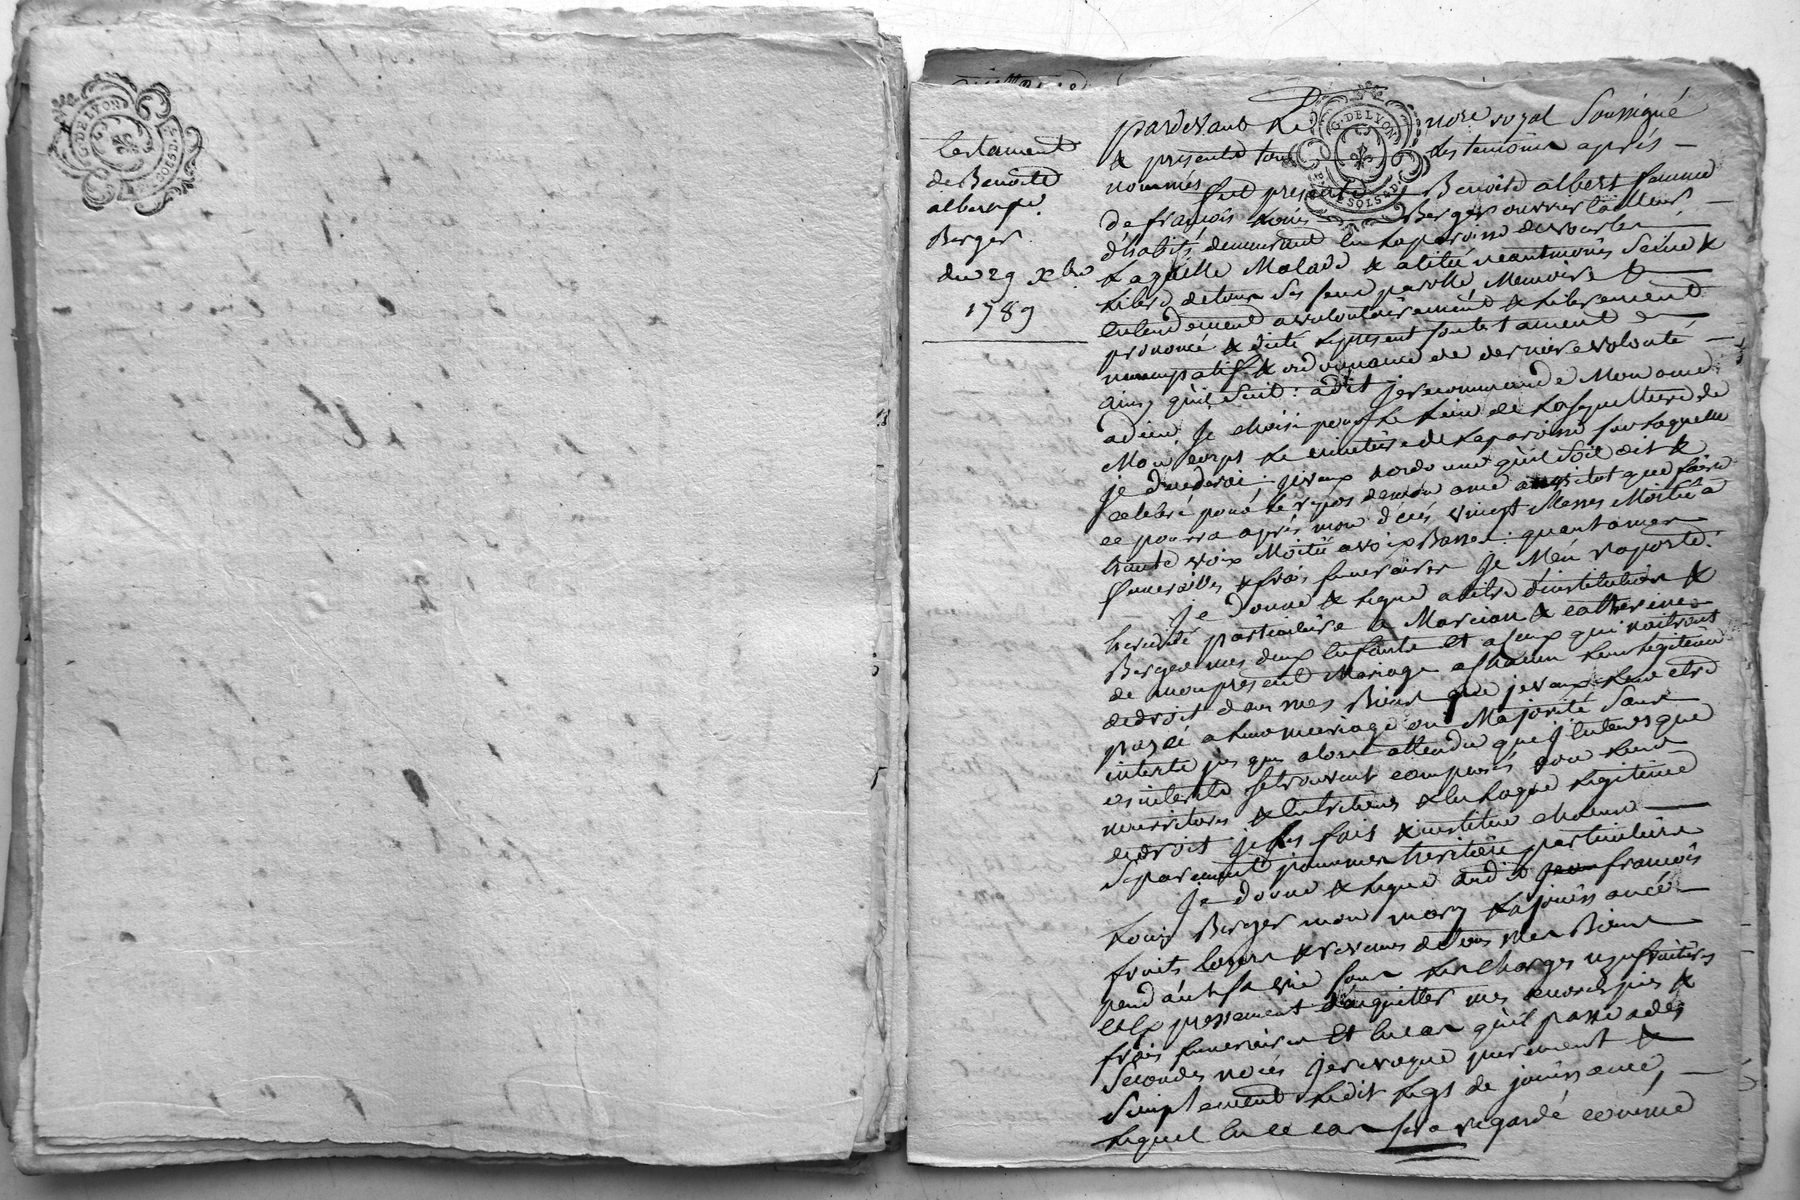 G. DE LYON
G. DE LYON
testament
de Benoite
albert fe.
Berger
du 29 Xbre
1789
pardevant Le nore royal soussigné
& présents les temoins après
nommés fut presente Benoite albert femme
de françois Louis Berger ouvrier tailleur
d'habits, demeurant en La paroisse de
Laquelle Malade & alitée neantmoins Seine &
Libre de tous ses sens parolle Memoire &
entendement a volontairement & Librement
prononcé & dicté Le present son testament
nuncupatif & ordonnance de derniere volonté
ainsy qu'il suit : a dit je recommande Mon ame
a dieu, Je choisi pour Le Lieu de La sepulture de
Mon corps Le cimetière de La paroisse sur Laquelle
je decederai : je veux & ordonne qu'il soit dit &
celebré pour Le repos de mon ame aussitot que faire
ce pourra après mon décés vingt Messes Moitié à
haute voix Moitié a voix Basse : quant a mes
funerailles & frais funeraires Je M'en raporte.
Je donne & Legue a titre d'institution &
heredité particulière a & catherine
Berger mes deux enfants et a ceux qui naitront
de mon present Mariage a chacun Leur Legitime
de droit dans mes Biens que je veux Leur etre
payée a Leur mariage ou Majorité sans
interets jusques alors attendu que j'entends que
es interets se trouvent compensés avec Leurs
nourritures & entretiens & en Laque Legitime
de droit je Les fais & institue chacun
separement pour mes heritiers particuliers
Je donne & Legue audit françois
Louis Berger mon mary La jouissance
fruits, Loyers & revenus de tous mes Biens
pendant sa vie sous Les charges usufruitieres
et expressement d'acquitter mes œuvres pies &
frais funeraires Et en cas qu'il passe a des
secondes noces je revoque purement &
simplement Ledit Legs de jouissance,
Lequel en ce cas sera regardé comme